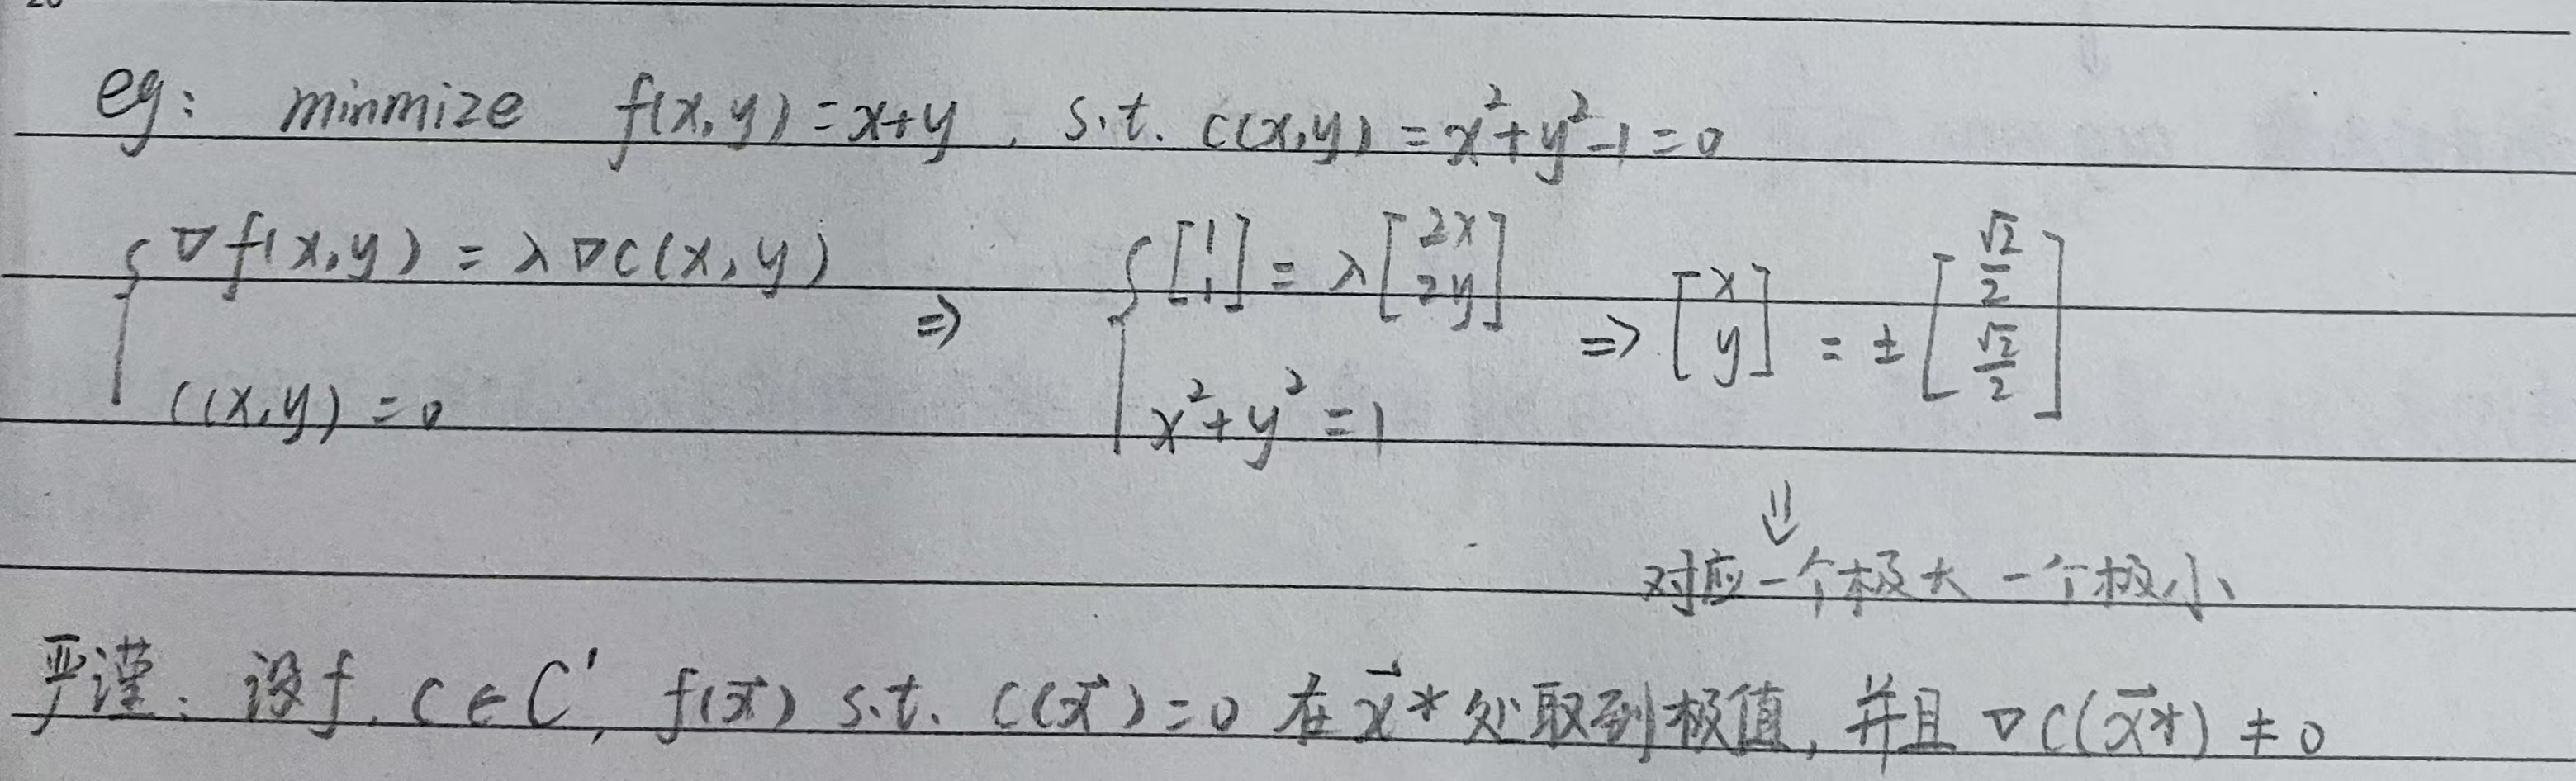 eg: minmize f(x,y)=x+y, s.t. c(x,y)=x²+y²-1=0
{ ∇f(x,y)=λ∇c(x,y) c(x,y)=0 ⇒ { [1 1]=λ[2x 2y] x²+y²=1 ⇒ [x y]=±[√2/2 √2/2]
⇓
对应一个极大 一个极小
严谨: 设f, c∈C', f(x⃗) s.t. c(x⃗)=0 在x⃗*处取到极值, 并且∇c(x⃗*)≠0